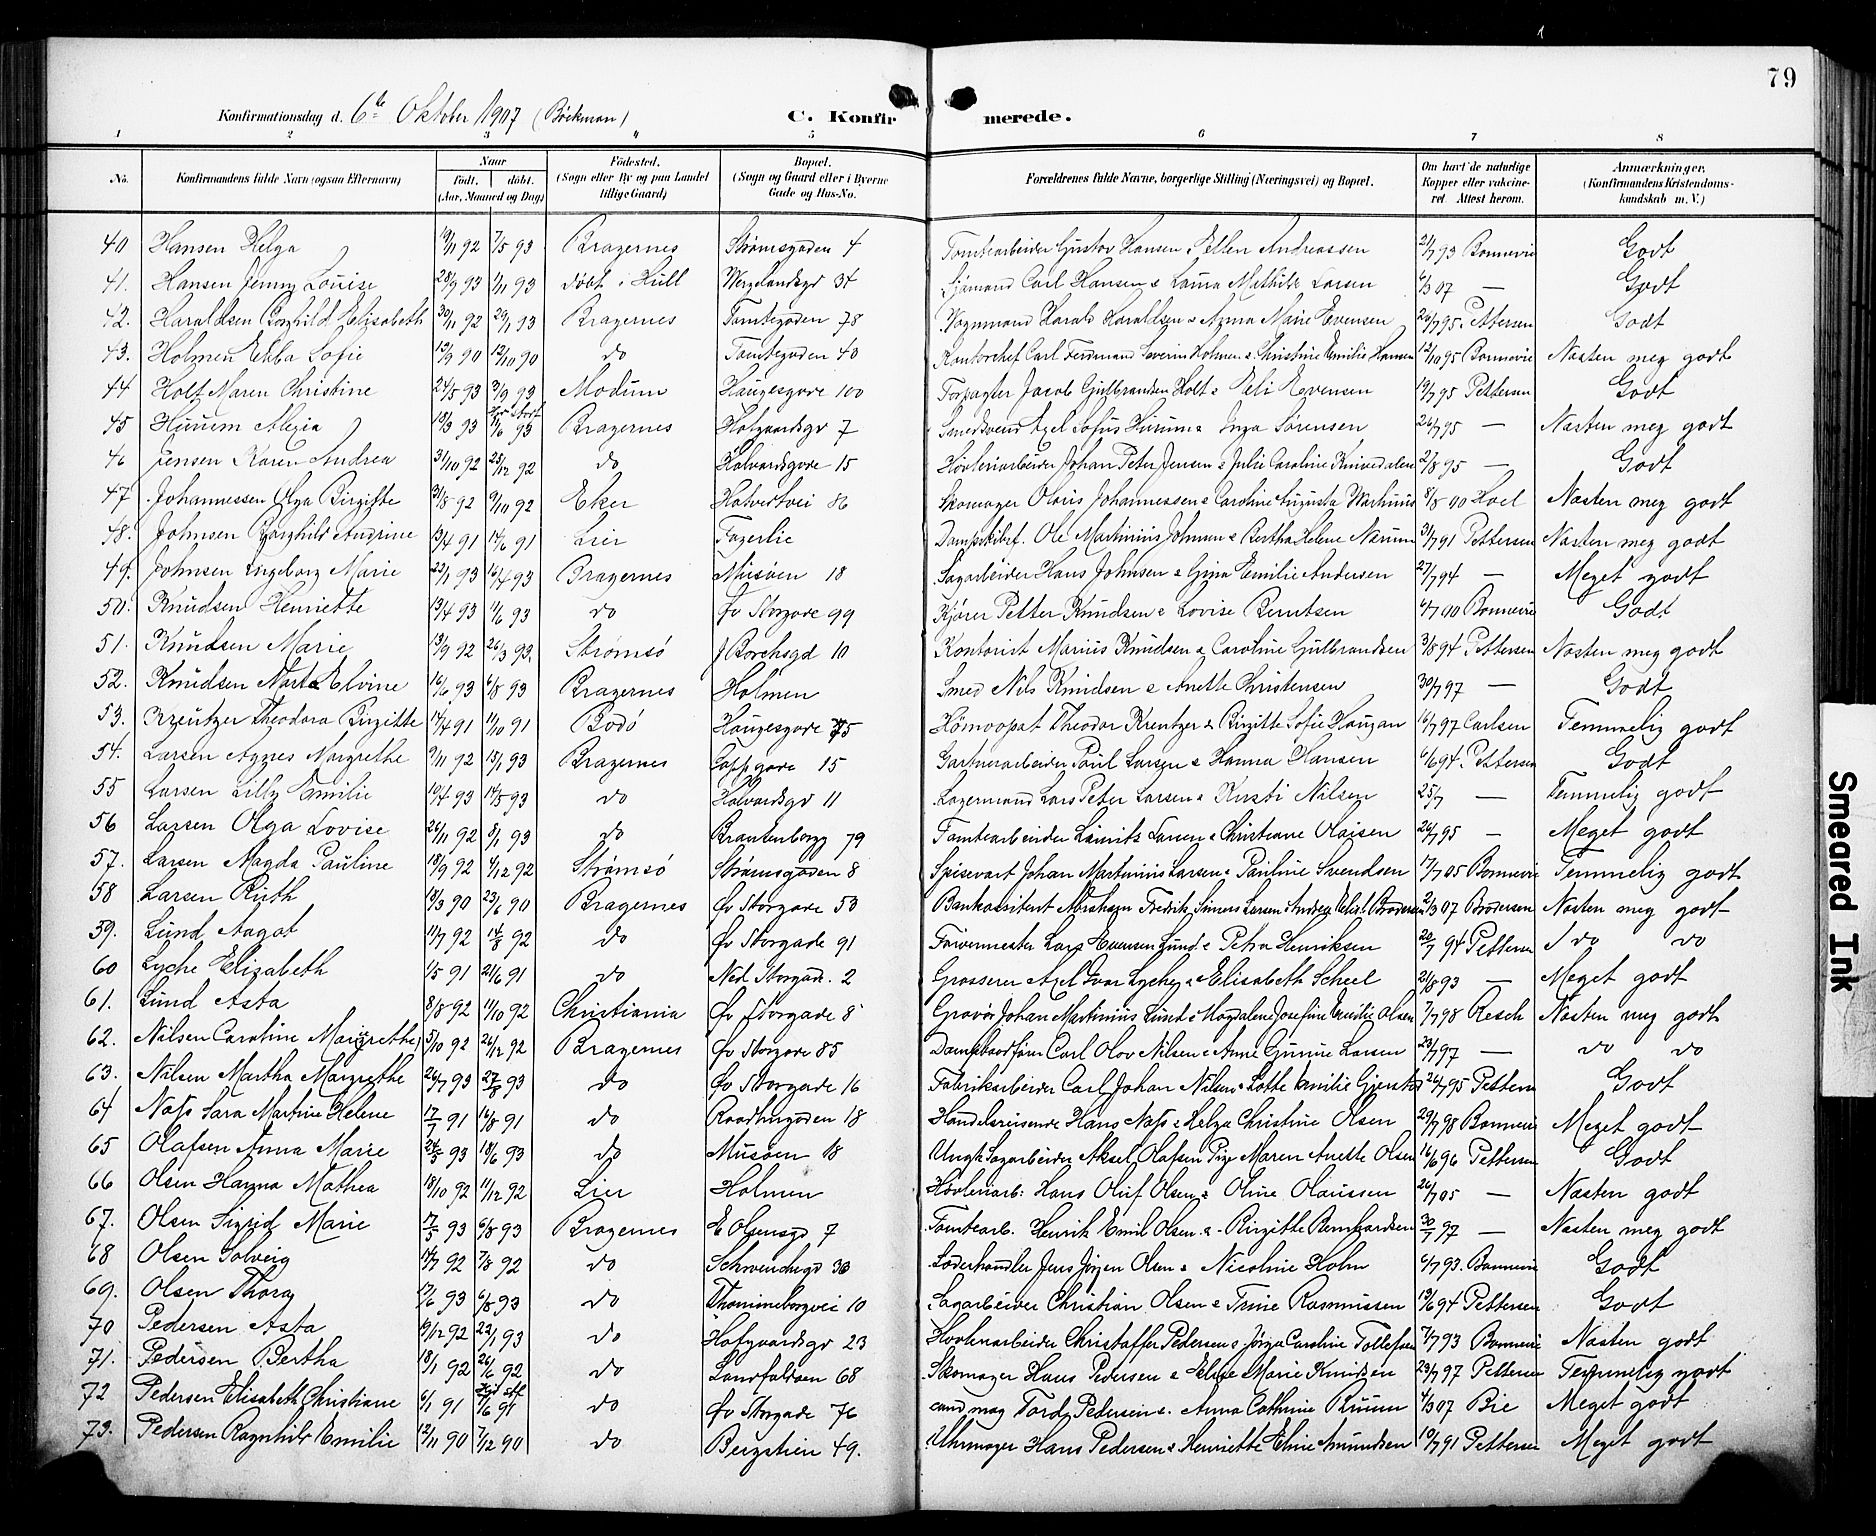 79
Konfirmationsdag d. 6te Oktober 1907 (Böckman) C. Konfirmerede.
1 2 3 4 5 6 7 8
No. Konfirmandens fulde Navn (ogsaa Efternavn) Naar födt. döbt. (Aar, Maaned og Dag) Födested. (Sogn eller By og paa Landet tillige Gaard) Bopæl. (Sogn og Gaard eller i Byerne Gade og Hus-No. Forældrenes fulde Navne, borgerlige Stilling (Næringsvei) og Bopæl. Om havt de naturlige Kopper eller vakcineret Attest herom. Anmærkninger. (Konfirmandens Kristendomskundskab m. V.)
40 Hansen Helga 19/11 92 7/5 93 Bragernes Strømsgaden 4 Tomtearbeider Gustav Hansen & Ellen Andreassen 21/7 93 Bonnevie Godt
41. Hansen Jenny Louise 28/9 93 1/11 93 döbt i Hull Wergelandsgd 34 Sjømand Carl Hansen & Laura Mathilde Larsen 6/3 07 — Godt
42. Haraldsen Borghild Elisabeth 30/11 92 29/1 93 Bragernes Tomtegaden 78 Vognmand Harald Haraldsen & Anna Marie Evensen 26/7 95 Pettersen Godt
43. Holmen Ebba Sofie 12/9 90 12/10 90 do Tomtegaden 40 Kontorchef Carl Ferdinand Severin Holmen & Christine Emilie Hansen 12/10 95 Bonnevie Næsten meg godt
44 Holt Maren Christine 24/5 93 3/9 93 Modum Haugesgade 100 Forpagter Jacob Gulbrandsen Holt & Eli Evensen 19/7 95 Pettersen Godt
45 Huuem Alexia 18/3 93 11/6 93 Bragernes Hofgaardsgd 7 Smedsvend Axel Sofus Huuem & Inga Sørensen 26/7 95 — Næsten meg godt
46 Jensen Karen Andrea 31/10 92 25/12 92 do Halvardsgade 15 Høvleriarbeider Johan Peter Jensen & Julie Caroline Knivedalen 2/8 95 — Godt
47 Johannessen Olga Birgitte 31/8 92 9/10 92 Eker Hotvedtvei 86 Skomager Olaus Johannessen & Caroline Augusta Warhuus 8/5 00 Hoel Næsten meg godt
48. Johnsen Borghild Andrine 13/4 91 14/6 91 Lier Fagerlie Dampskibsf. Ole Martinius Johnsen & Bertha Helene Narum 31/7 91 Pettersen Næsten meg godt
49. Johnsen Ingeborg Marie 22/1 93 16/4 93 Bragernes Musöen 18 Sagarbeider Hans Johnsen & Gina Emilie Andersen 27/7 94 — Meget godt
50. Knudsen Henriette 13/4 93 11/6 93 do Øv Storgade 99 Kjører Petter Knudsen & Lovise Berntsen 6/7 00 Bonnevie Godt
51. Knudsen Marie 13/9 92 26/3 93. Strømsö J Borchsgd 10 Kontorist Marius Knudsen & Caroline Gulbrandsen 3/8 94 Pettersen Næsten meg godt
52. Knudsen Marta Elvine 16/6 93 6/8 93 Bragernes Holmen Smed Nils Knudsen & Anette Christensen 30/7 97 — Godt
53. Kreutzer Theodora Birgitte 14/4 91 11/10 91 Bodö Haugesgade 75 Hömoopat Theodor Kreutzer & Birgitte Sofie Haugan 16/7 97 Carlsen Temmelig godt
54. Larsen Agnes Margrethe 9/11 92 15/1 93 Bragernes Cappgade 15 Gartnerarbeider Paul Larsen & Hanna Hansen 6/6 94. Pettersen Godt
55 Larsen Lilly Emilie 10/4 93 14/5 93 do Halvardsgd 11 Lagermand Lars Peter Larsen & Kirsti Nilsen 25/7 — Temmelig godt
56 Larsen Olga Lovise 26/11 92 8/1 93 do Brantenborg 79 Tomtearbeider Laurits Larsen & Christiane Olaisen 26/7 95 — Meget godt
57. Larsen Magda Pauline 18/9 92 4/12 92 Strømsö Strømsgaden 8 Spisevært Johan Martinius Larsen & Pauline Svendsen 17/7 05 Bonnevie Temmelig godt
58 Larsen Ruth 18/3 90 23/6 90 Bragernes Øv Storgade 53 Bankassistent Abrahazn Fredrik Simers Larsen & Andrea Brodersen 2/3 07 Brodersen Næsten meg godt
59. Lund Aagot 11/7 92 14/8 92 do Øv Storgade 91 Farvermester Lars Evensen Lund & Petra Henriksen 20/7 94 Pettersen do do
60 Lyche Elizabeth 1/5 91 21/6 91 do Ned Storgad. 2 Grosserer Axel Ivar Lyche & Elisabeth Scheel 21/8 93 — Meget godt
61. Lund Asta 8/8 92 11/10 92 Christiania Øv Storgade 8 Gravör Johan Martinius Lund & Magdalene Josefine Emilie Olsen 7/7 98 Resch Næsten meg godt
62. Nilsen Caroline Margrethe 5/10 92 26/12 92 Bragernes Øv Storgade 85 Dampbaadförer Carl Olov Nilsen & Anne Gurine Larsen 23/7 97 — do do
63. Nilsen Martha Margrethe 26/7 93 27/8 93 do Øv Storgade 16 Fabrikarbeider Carl Johan Nilsen & Lotte Emilie Gjerstad 26/7 95 Pettersen Godt
64 Nøts Sara Martine Helene 17/7 91 16/8 91 do Raadhusgaden 18 Handelsreisende Hans Nøts & Helga Christine Olsen 29/7 98 Bonnevie Meget godt
65 Olafsen Anna Marie 24/3 93 18/6 93 do Musöen 18 Ungk Sagarbeider Aksel Olafsen Pige Maren Anette Olsen 16/6 96 Pettersen Godt
66 Olsen Hanna Mathea 18/10 92 11/12 92 Lier Holmen Hövleriarb: Hans Oluf Olsen & Oline Olaussen 26/7 05 — Næsten godt
67. Olsen Sigrid Marie 17/5 93 6/8 93 Bragernes E Olsensgd 7 Tomtearb. Henrik Emil Olsen & Birgitte Berntgardsen 30/7 97 — Næsten meg godt
68 Olsen Solveig 14/7 92 7/8 92 do Schwenckegd 33 Læderhandler Jens Jörgen Olsen & Nicoline Holm 6/7 93. Bonnevie Godt
69. Olsen Thora 17/6 93 6/8 93 do Thorineborgvei 10 Sagarbeider Christian Olsen & Trine Rasmussen 13/6 94 Pettersen Godt
70 Pedersen Asta 19/12 92 22/1 93 do Hofgaardsgd 23 Hövleriarbeider Christoffer Pedersen & Jörga Caroline Tollefsen 7/7 93 Bonnevie Næsten godt
71. Pedersen Bertha 18/1 92 26/6 92 do Landfaldsen 68 Skomager Hans Pedersen & Eline Marie Knudsen 23/7 97 Pettersen Temmelig godt
72 Pedersen Elisabeth Christiane 6/1 91 1/6 91 do Øv Storgade 76 cand mag Tord Pedersen & Anna Cathrine Ruuer 4/3 07 Bie Meget godt
73. Pedersen Ragnhild Emilie 12/11 90 7/12 90 do Bergstien 49. Uhrmager Hans Pedersen & Henriette Eline Amundsen 10/7 91 Pettersen Meget godt
Smeared Ink